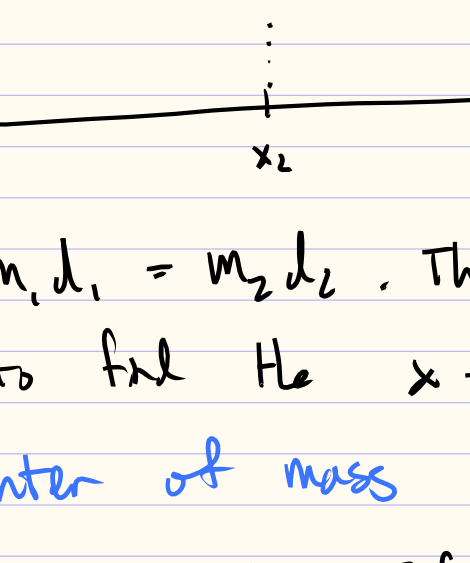 x₂
m₁d₁ = m₂d₂ .
to find the x
of mass